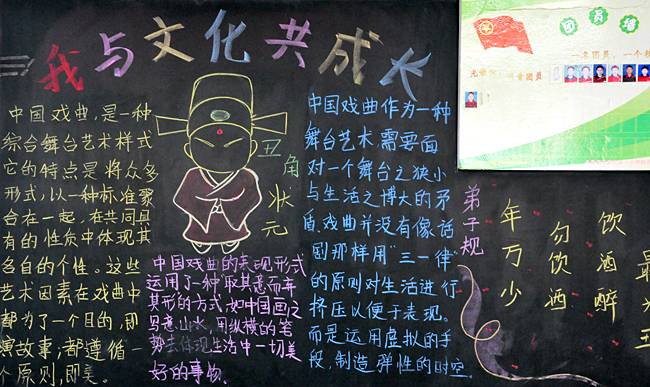 我与文化共成长
中国戏曲,是一种
综合舞台艺术样式
它的特点是将众多
形式,以一种标准聚
合在一起,在共同具
有的性质中体现其
各自的个性。这些
艺术因素在戏曲中
都为了一个目的,即
演故事;都遵循一
个原则,即美。
丑角
状元
中国戏曲的表现形式
运用了一种"取其意而弃
其形的方式,如中国画之
写意山水,用纵横的笔
势去体现生活中一切美
好的事物.
中国戏曲作为一种
舞台艺术,需要面
对一个舞台之狭小
与生活之博大的矛
盾.戏曲并没有像话
剧那样用"三一律"
的原则对生活进行
挤压以便于表现。
而是运用虚拟的手
段,制造弹性的时空.
弟子规
年方少
勿饮酒
饮酒醉
最为丑
团员